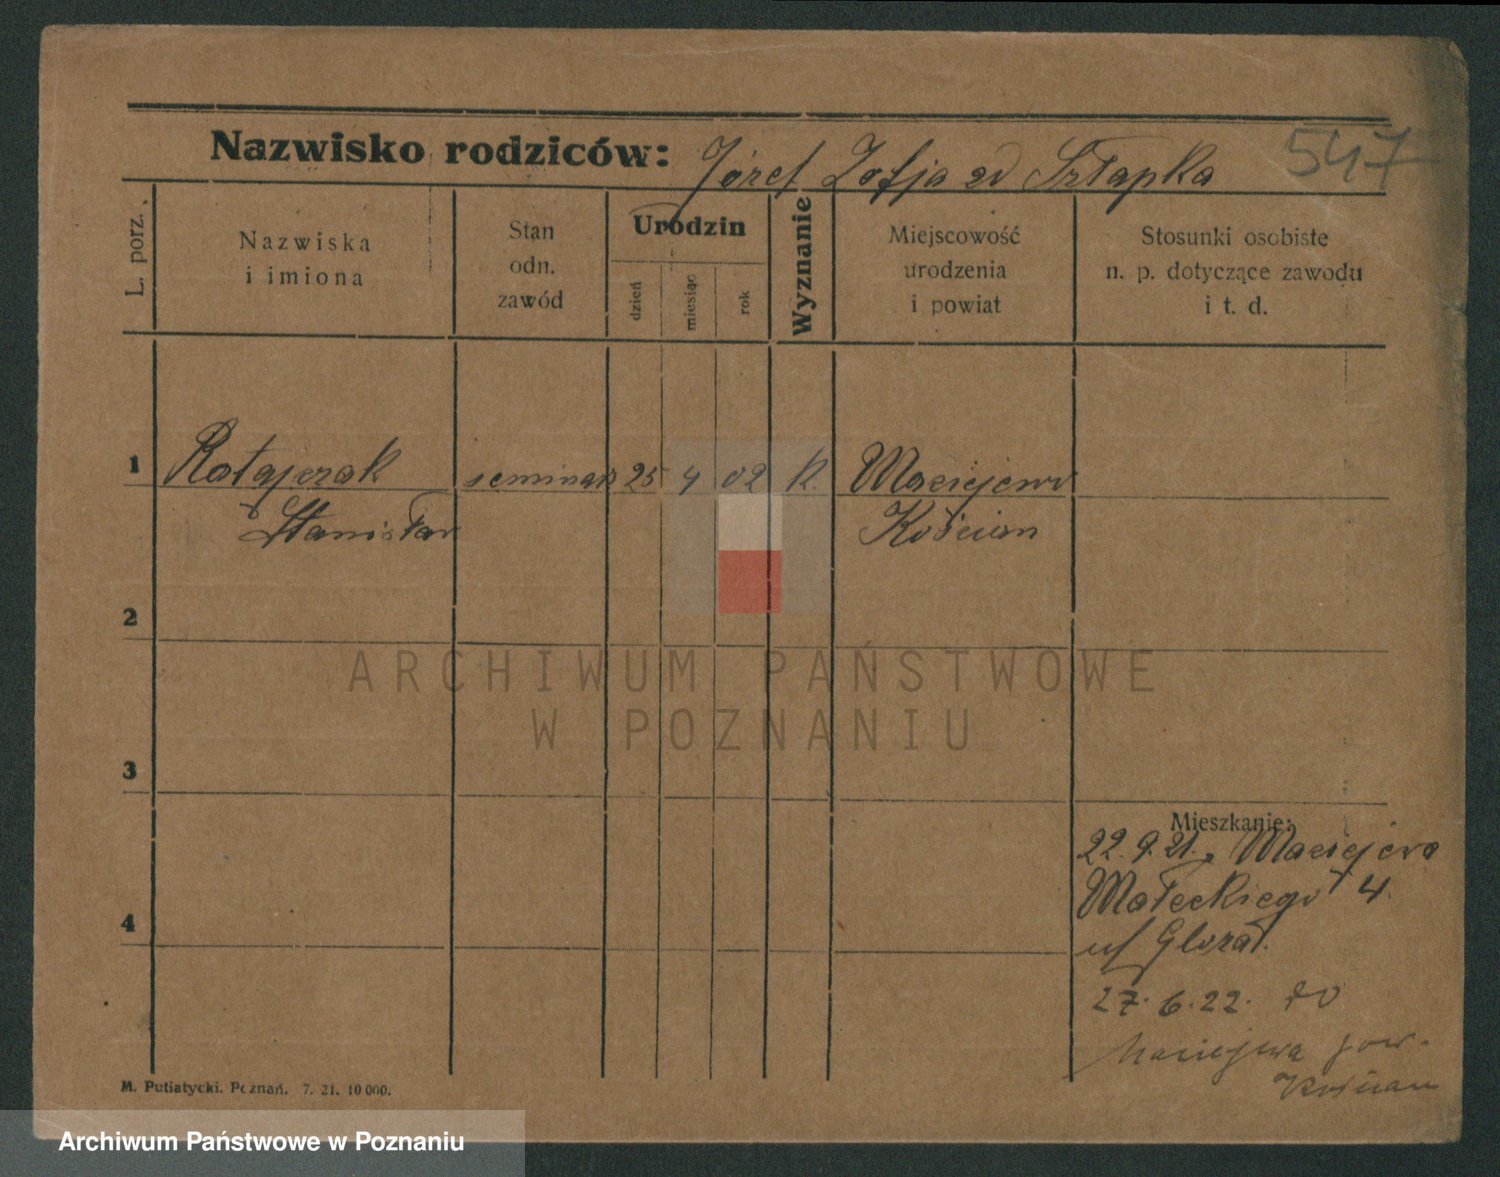 547
Nazwisko rodziców: Józef Zofja zd Szłapka
L. porz.
Nazwiska
i imiona
Stan
odn.
zawód
Urodzin
dzień
miesiąc
rok
Wyznanie
Miejscowość
urodzenia
i powiat
Stosunki osobiste
n. p. dotyczące zawodu
i t. d.
1 Ratajczak seminar 25 4 02 k. Maciejewo
Stanisław Kościan
2
3
Mieszkanie:
22.9.21. Maciejewo
Małeckiego 4.
4
27.6.22. do
Maciejewa pow.
Kościan
M. Putiatycki. Poznań. 7. 21. 10 000.
ARCHIWUM PAŃSTWOWE
W POZNANIU
Archiwum Państwowe w Poznaniu